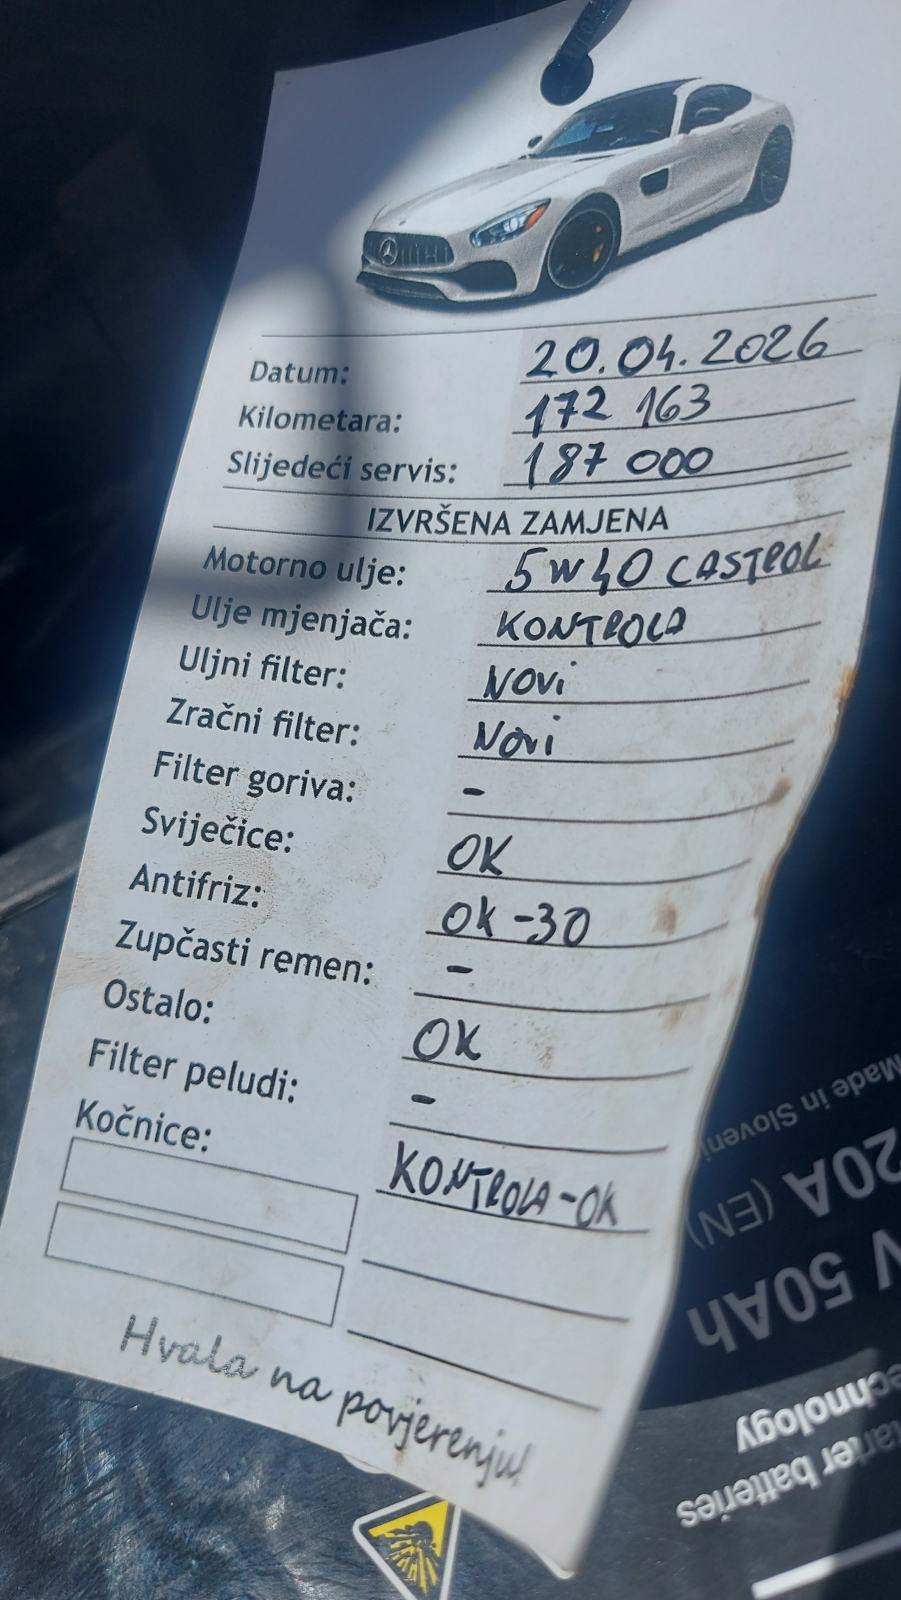 Datum: 20.04.2026
Kilometara: 172 163
Slijedeći servis: 187 000
IZVRŠENA ZAMJENA
Motorno ulje: 5W40 CASTROL
Ulje mjenjača: KONTROLA
Uljni filter: NOVI
Zračni filter: NOVI
Filter goriva: -
Sviječice: OK
Antifriz: OK -30
Zupčasti remen: -
Ostalo: OK
Filter peludi: -
Kočnice: KONTROLA-OK
Hvala na povjerenju!
Made in Sloveni
20A (EN)
V 50Ah
echnology
arter batteries